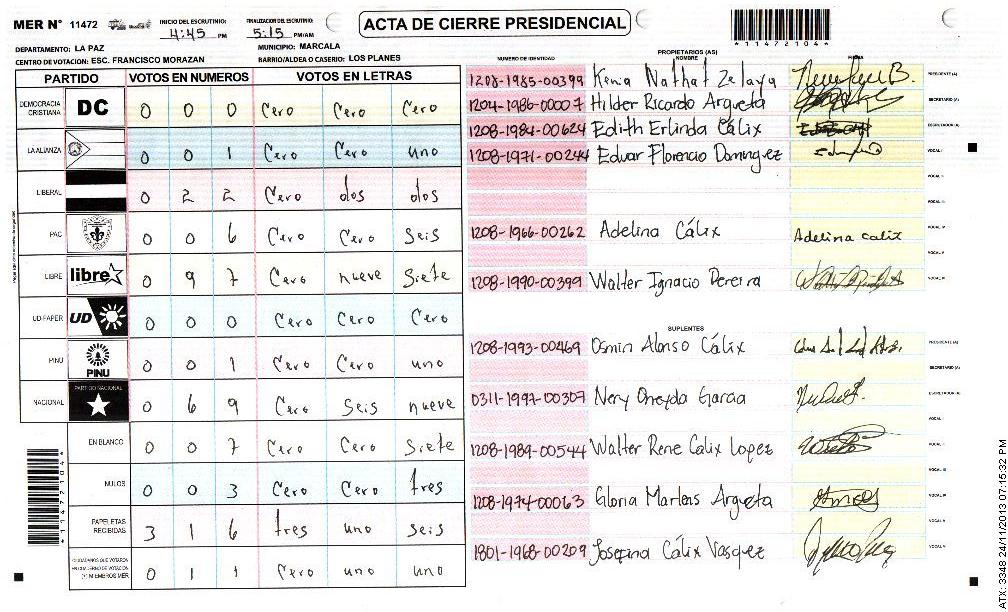 MER N° 11472
INICIO DEL ESCRUTINIO: 4:45 PM
FINALIZACION DEL ESCRUTINIO: 5:15 PM/AM
ACTA DE CIERRE PRESIDENCIAL
*11472104*
DEPARTAMENTO: LA PAZ
MUNICIPIO: MARCALA
CENTRO DE VOTACION: ESC. FRANCISCO MORAZAN
BARRIO/ALDEA O CASERIO: LOS PLANES
PARTIDO VOTOS EN NUMEROS VOTOS EN LETRAS
DEMOCRACIA CRISTIANA DC 0 0 0 Cero Cero Cero
LA ALIANZA 0 0 1 Cero Cero uno
LIBERAL 0 2 2 Cero dos dos
PAC 0 0 6 Cero Cero Seis
LIBRE libre 0 9 7 Cero nueve Siete
UD FAPER UD 0 0 0 Cero Cero Cero
PINU PINU 0 0 1 Cero Cero uno
NACIONAL PARTIDO NACIONAL 0 6 9 Cero Seis nueve
EN BLANCO 0 0 7 Cero Cero Siete
NULOS 0 0 3 Cero Cero tres
PAPELETAS RECIBIDAS 3 1 6 tres uno seis
CIUDADANOS QUE VOTARON EN CUADERNO DE VOTACION (+) MIEMBROS MER 0 1 1 Cero uno uno
*11472104*
NUMERO DE IDENTIDAD PROPIETARIOS (AS) NOMBRE FIRMA
1208-1985-00399 Kenia Nathat Zelaya PRESIDENTE (A)
1204-1986-00007 Hilder Ricardo Argueta SECRETARIO (A)
1208-1984-00624 Edith Erlinda Cálix ESCRUTADOR (A)
1208-1971-00244 Edvar Florencio Dominguez VOCAL I
VOCAL II
VOCAL III
1208-1966-00262 Adelina Cálix Adelina calix VOCAL IV
VOCAL V
1208-1990-00399 Walter Ignacio Pereira VOCAL VI
SUPLENTES
1208-1993-00469 Osmin Alonso Cálix PRESIDENTE (A)
SECRETARIO (A)
0311-1997-00307 Nery Oneyda Garcia ESCRUTADOR (A)
VOCAL I
1208-1989-00544 Walter Rene Calix Lopez VOCAL II
VOCAL III
1208-1974-00063 Gloria Marleas Argueta VOCAL IV
VOCAL V
1801-1968-00209 Josefina Cálix Vasquez VOCAL VI
ATX: 3348 24/11/2013 07:15:32 PM